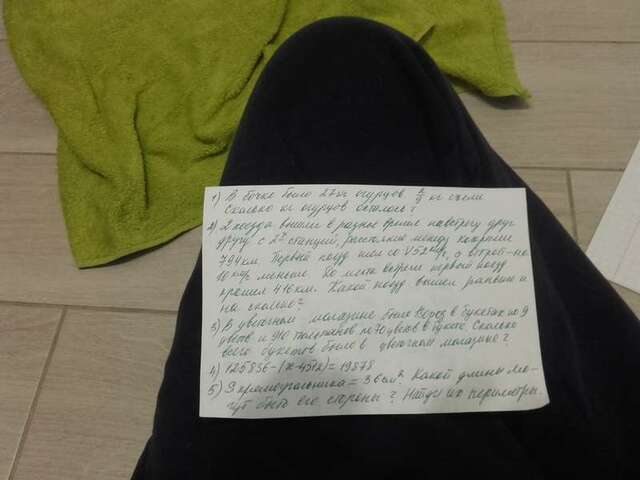 1) В бочке было 27 кг огурцов. кг съели
Сколько кг огурцов осталось?
2) 2 поезда вышли в разное время навстречу друг
другу с 2х станций, расстояние между которыми
794 км. Первый поезд шел со V 52 км/ч, а второй - на
10 км/ч меньше. До места встречи первый поезд
прошел 416 км. Какой поезд вышел раньше и
на сколько?
3) В цветочном магазине было роз в букетах по 9
цветов и 910 тюльпанов по 70 цветов в букете. Сколько
всего букетов было в цветочном магазине?
4) 125836-(x-4512)=19878
5) S прямоугольника = 36 см². Какой длины мо-
гут быть его стороны? Найди их периметры.